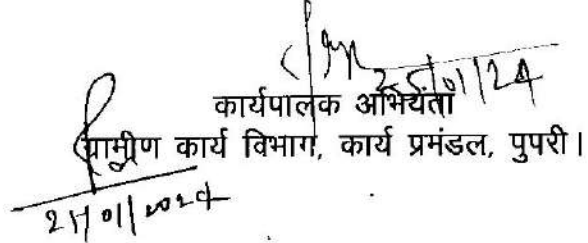 25/01/24
कार्यपालक अभियंता
ग्रामीण कार्य विभाग, कार्य प्रमंडल, पुपरी।
25/01/2024